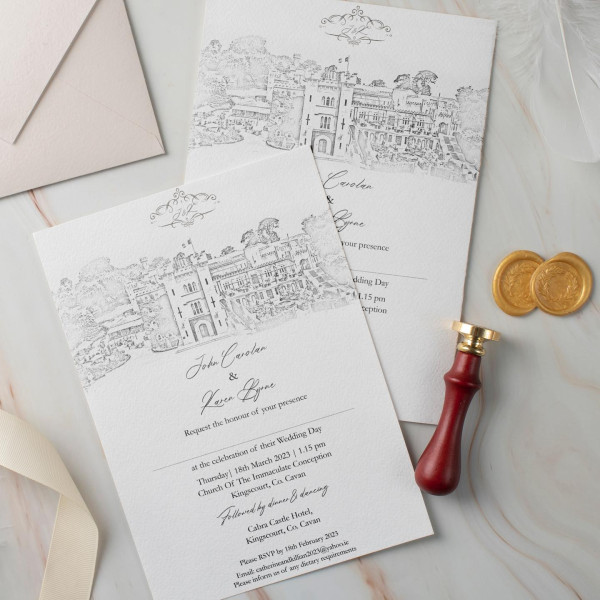 John Carolan
&
Karen Byrne
Request the honour of your presence
at the celebration of their Wedding Day
Thursday| 18th March 2023 | 1.15 pm
Church Of The Immaculate Conception
Kingscourt, Co. Cavan
Followed by dinner & dancing
Cabra Castle Hotel,
Kingscourt, Co. Cavan
Please RSVP by 18th February 2023
Email: catherineandkillian2023@yahoo.ie
Please inform us of any dietary requirements
Carolan
&
Byrne
your presence
Wedding Day
1.15 pm
Conception